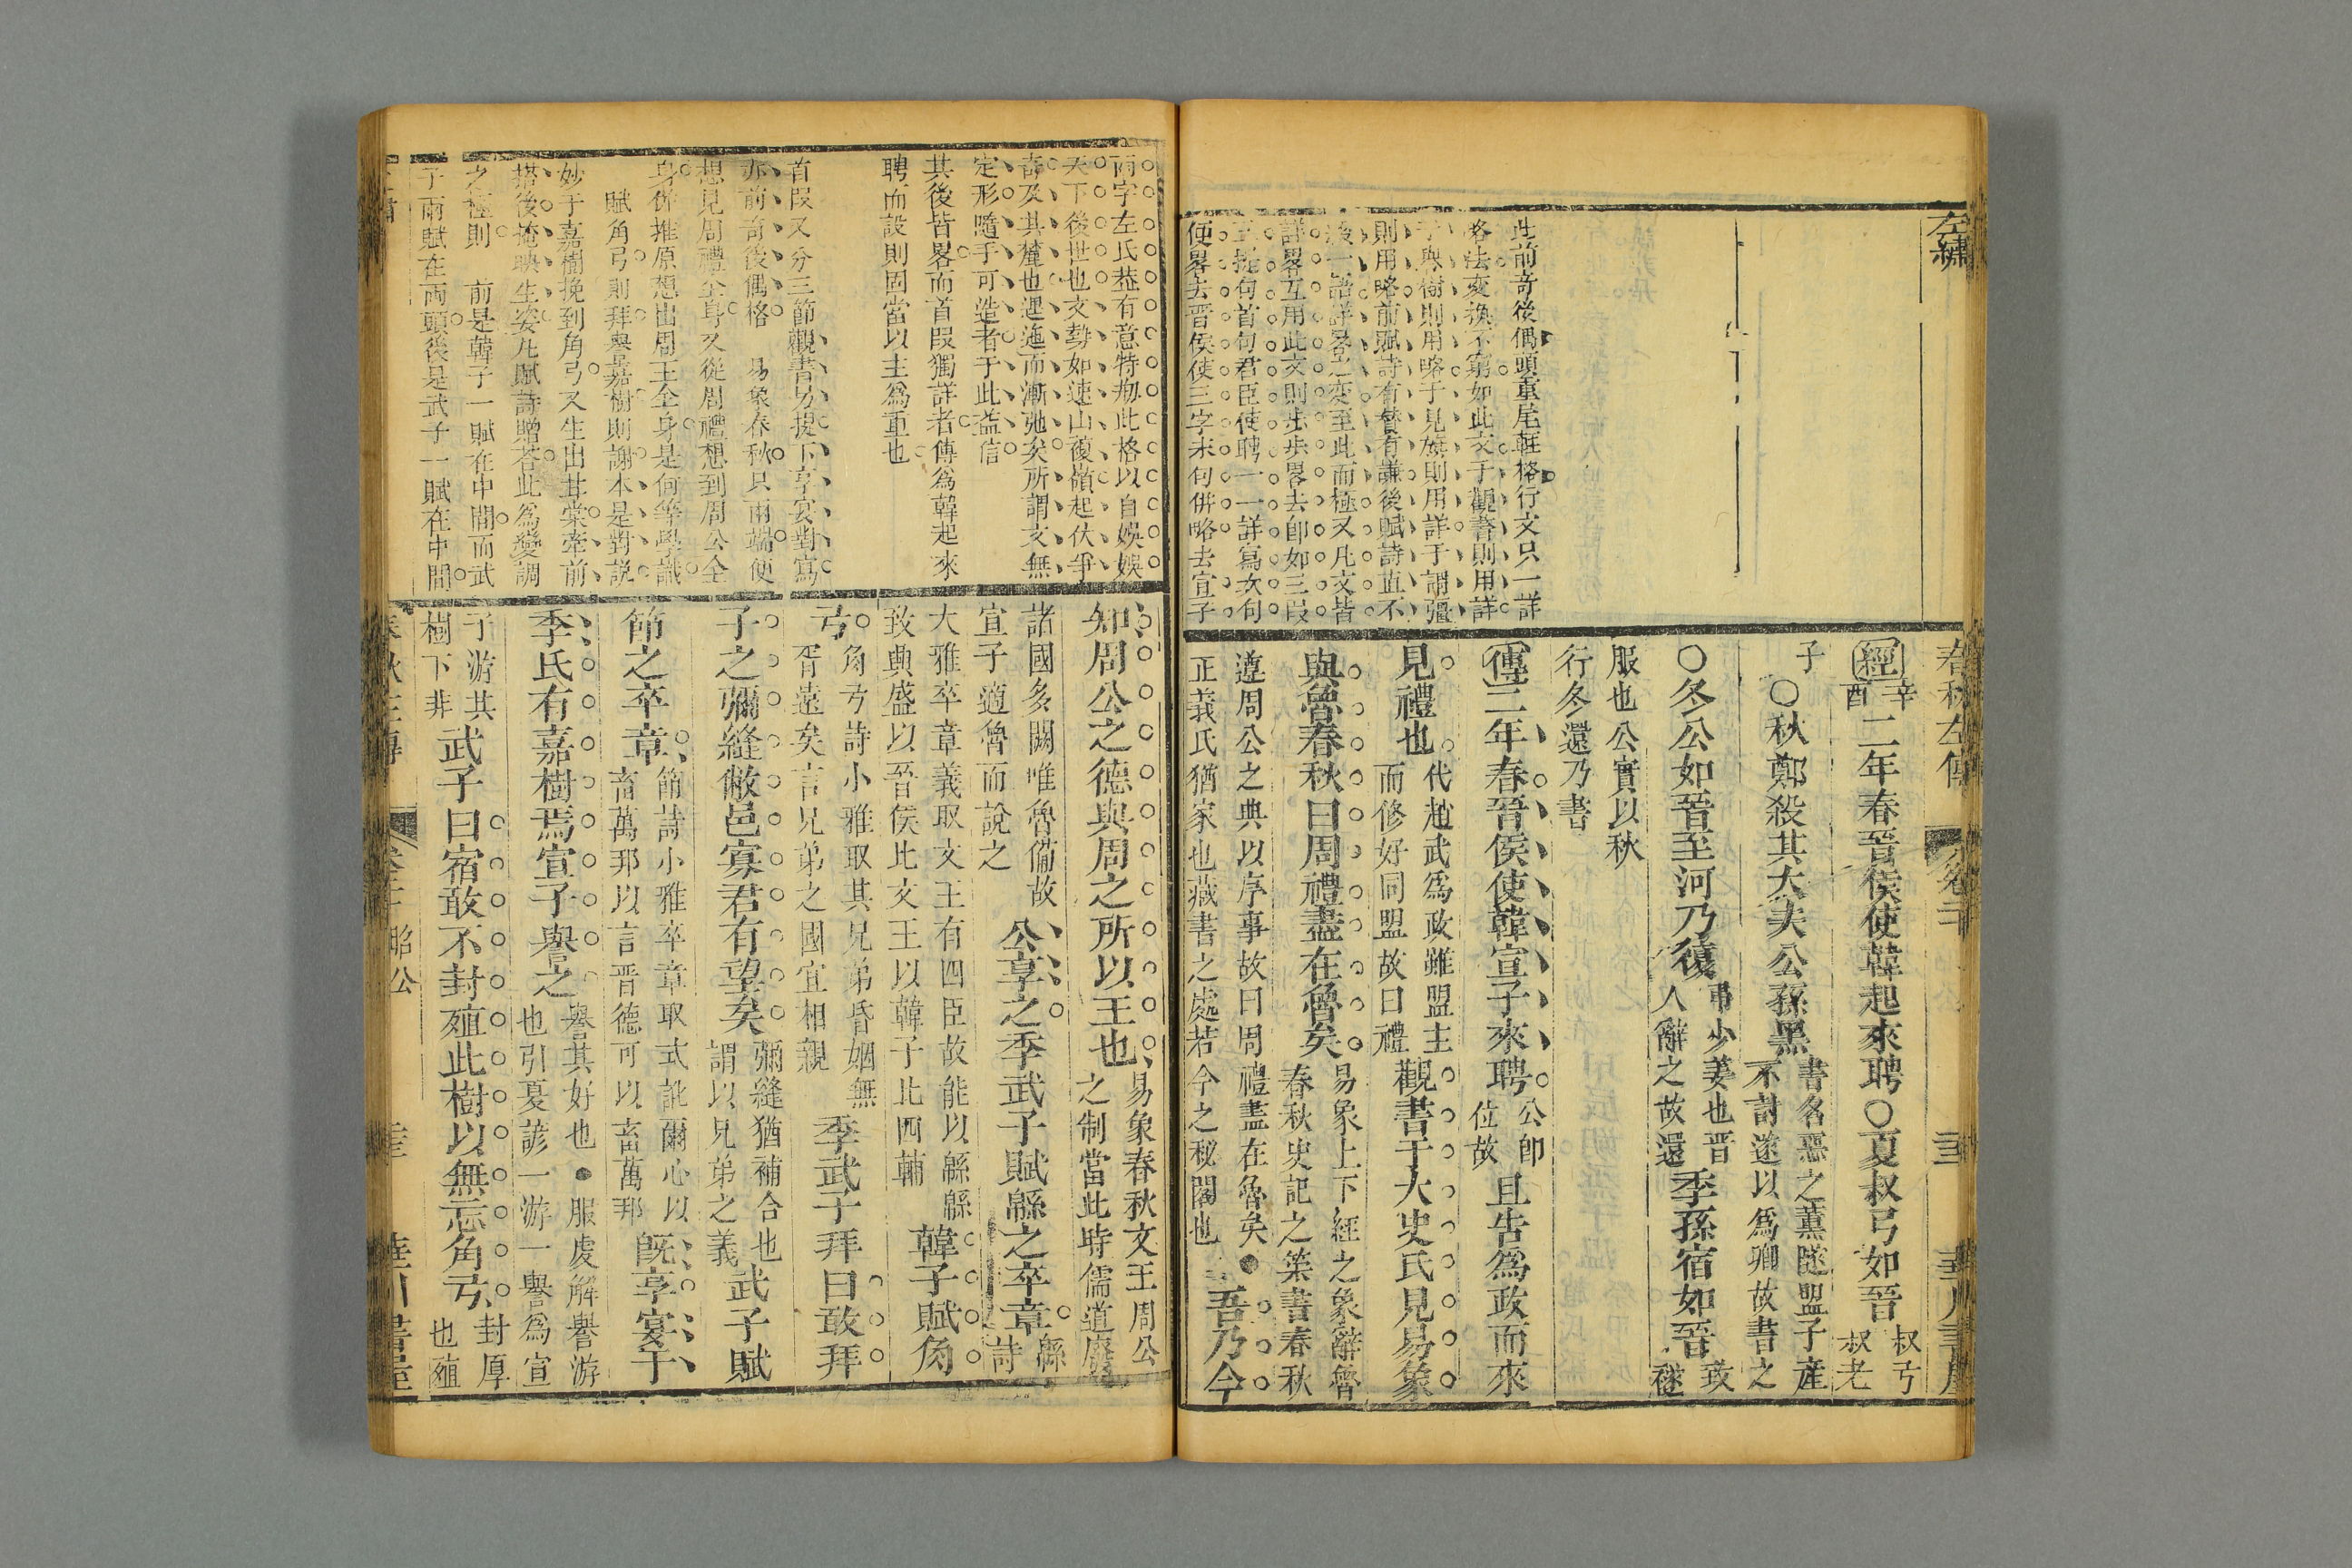 左繡
此前奇後偶頭重尾輕格行文只一詳
略法変換不窮如此文于觀書則用詳
于與樹則用略于見旗則用詳于謂彊
則用略前賦詩有贊有謙後賦詩直不
著一語詳畧之変至此而極又凡文皆
詳畧互用此文則步步畧去卽如三叚
三提句首句君臣使聘一一詳寫次句
便畧去晋侯使三字末句併略去宣子
春秋左傳
經辛酉二年春晉侯使韓起來聘○夏叔弓如晉叔弓叔老
子○秋鄭殺其大夫公孫黑書名惡之薰隧盟子產不討遂以爲卿故書之
○冬公如晉至河乃復弔少姜也晋人辭之故還季孫宿如晉致襚
服也公實以秋行冬還乃書
傳二年春晉侯使韓宣子來聘公卽位故且告爲政而來
見禮也代趙武爲政雖盟主而修好同盟故曰禮觀書于大史氏見易象
與魯春秋曰周禮盡在魯矣易象上下經之象辭魯春秋史記之策書春秋
遵周公之典以序事故曰周禮盡在魯矣●正義氏猶家也藏書之處若今之秘閣也吾乃今
兩字左氏葢有意特刱此格以自娛娛
天下後世也文勢如連山複嶺起伏爭
奇及其麓也迤邐而漸弛矣所謂文無
定形隨手可造者于此益信
其後皆畧而首叚獨詳者傳爲韓起來
聘而設則固當以主爲重也
首叚又分三節觀書另提下享宴對寫
亦前奇後偶格 易象春秋只兩端便
想見周禮全身又從周禮想到周公全
身併推原想出周王全身是何等學識
賦角弓則拜譽嘉樹則謝本是對説
妙于嘉樹挽到角弓又生出甘棠牽前
搭後掩映生姿凡賦詩贈荅此爲變調
之極則 前是韓子一賦在中間而武
子兩賦在兩頭後是武子一賦在中間
知周公之德與周之所以王也易象春秋文王周公之制當此時儒道廢
諸國多闕唯魯備故宣子適魯而說之公享之季武子賦緜之卒章緜詩
大雅卒章義取文王有四臣故能以緜緜致興盛以晉侯比文王以韓子比四輔韓子賦角
弓角弓詩小雅取其兄弟昏姻無胥遠矣言兄弟之國宜相親季武子拜曰敢拜
子之彌縫敝邑寡君有望矣彌縫猶補合也謂以兄弟之義武子賦
節之卒章節詩小雅卒章取式訛爾心以畜萬邦以言晋德可以畜萬邦旣享宴于
季氏有嘉樹焉宣子譽之譽其好也●服虔解譽游也引夏諺一游一譽爲宣
子游其樹下非武子曰宿敢不封殖此樹以無忘角弓封厚也殖
昭公